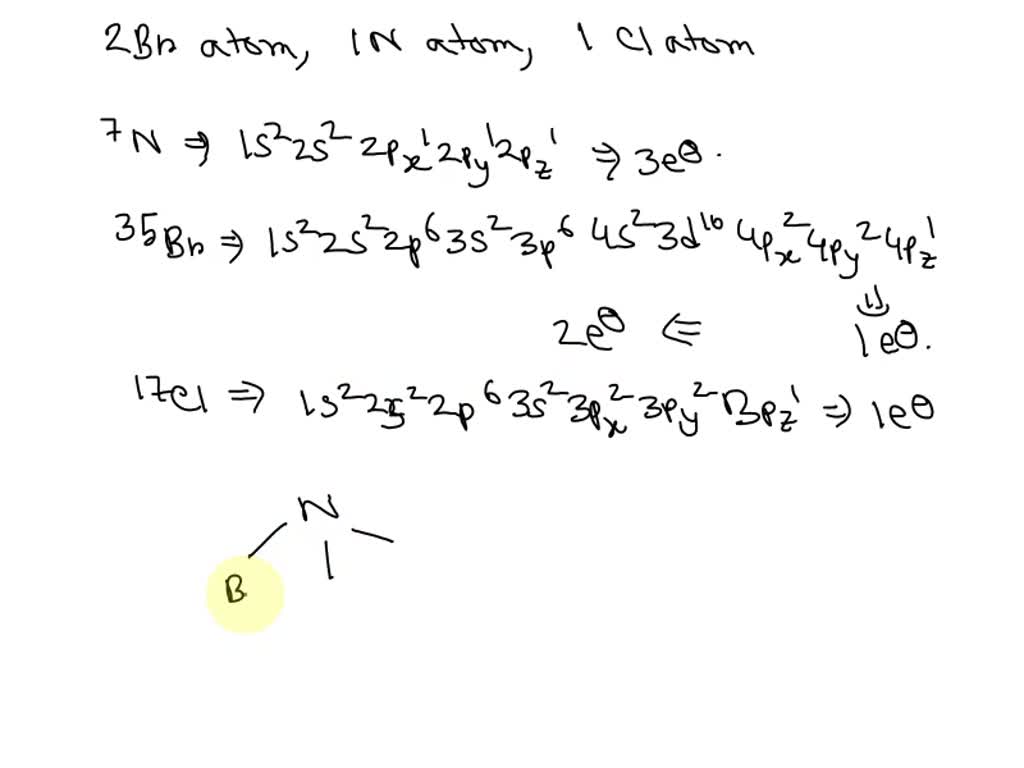 2Br atom, 1N atom, 1 Cl atom
⁷N ⇒ 1s²2s²2pₓ¹2p_y¹2p_z¹ ⇒ 3e⊖.
³⁵Br ⇒ 1s²2s²2p⁶3s²3p⁶4s²3d¹⁰4pₓ²4p_y²4p_z¹
2e⊖ ⇐ 1e⊖.
¹⁷Cl ⇒ 1s²2s²2p⁶3s²3pₓ²3p_y²3p_z¹ ⇒ 1e⊖
N
B